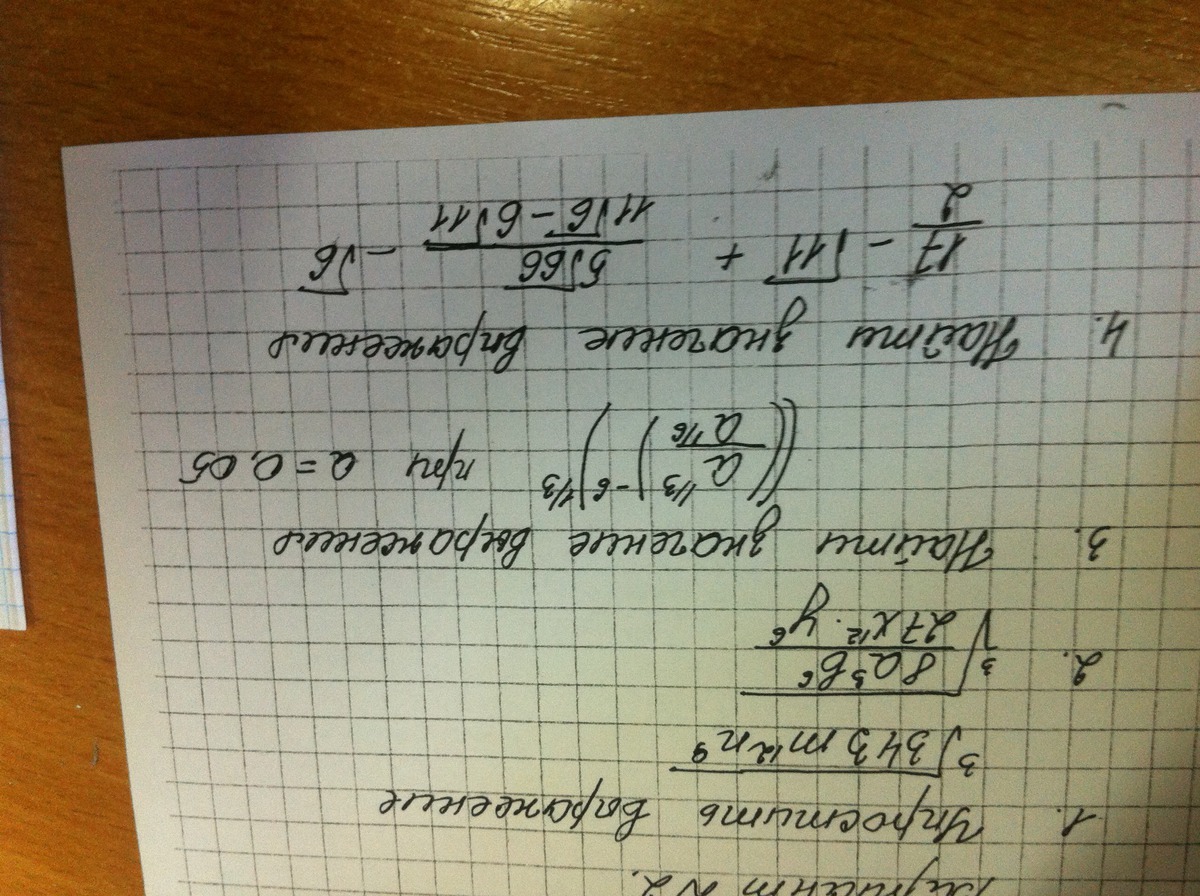 Вариант №2.
1. Упростить выражение
∛(343 m¹² n⁹)
2. ∛(8a³b⁶ / 27x¹² · y⁶)
3. Найти значение выражения
((a^1/3 / a^1/6)^-6)^1/3 при a = 0,05
4. Найти значение выражения
17/2 - √11 + 5√66 / (11√6 - 6√11) - √6